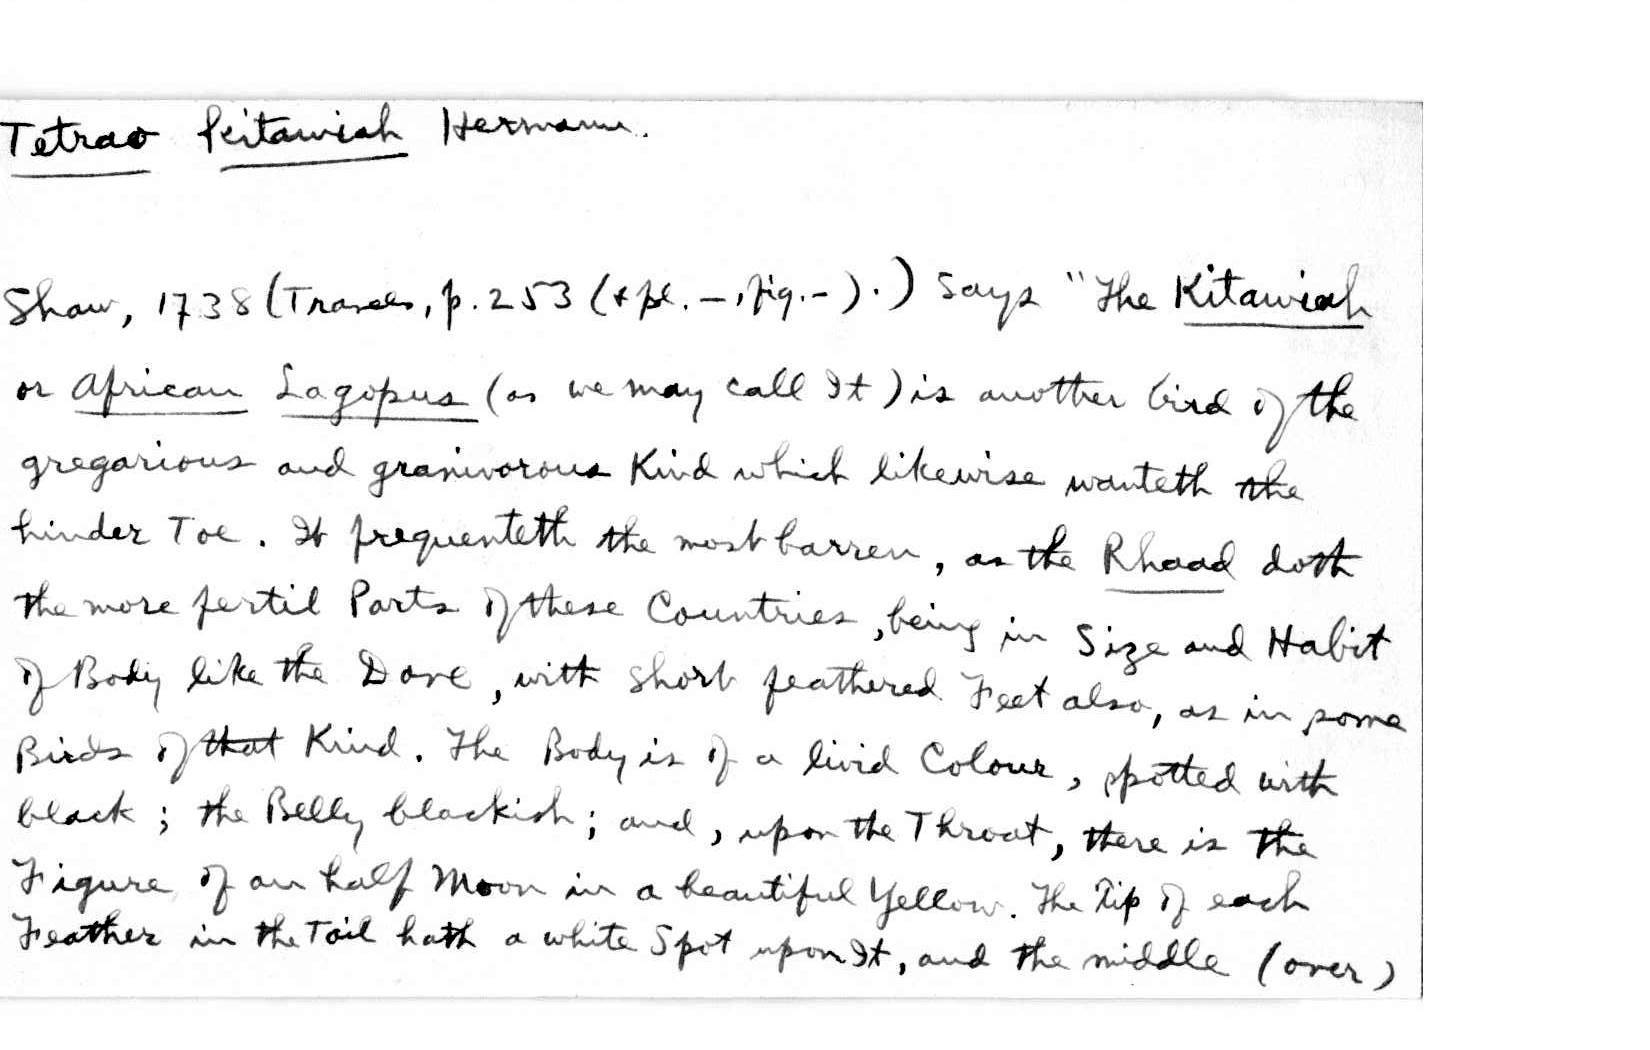 Tetrao kitawiah Hermann.
Shaw, 1738 (Travels, p. 253 (+ pl. –, fig. – ).) Says "The Kitawiah
or African Lagopus (as we may call It) is another bird of the
gregarious and granivorous Kind which likewise wanteth the
hinder Toe. It frequenteth the most barren, as the Rhaad doth
the more fertil Parts of these Countries, being in Size and Habit
of Body like the Dove, with short feathered Feet also, as in some
Birds of that Kind. The Body is of a livid Colour, spotted with
black; the Belly blackish; and, upon the Throat, there is the
Figure of an half Moon in a beautiful Yellow. The Tip of each
Feather in the Tail hath a white Spot upon It, and the middle (over)